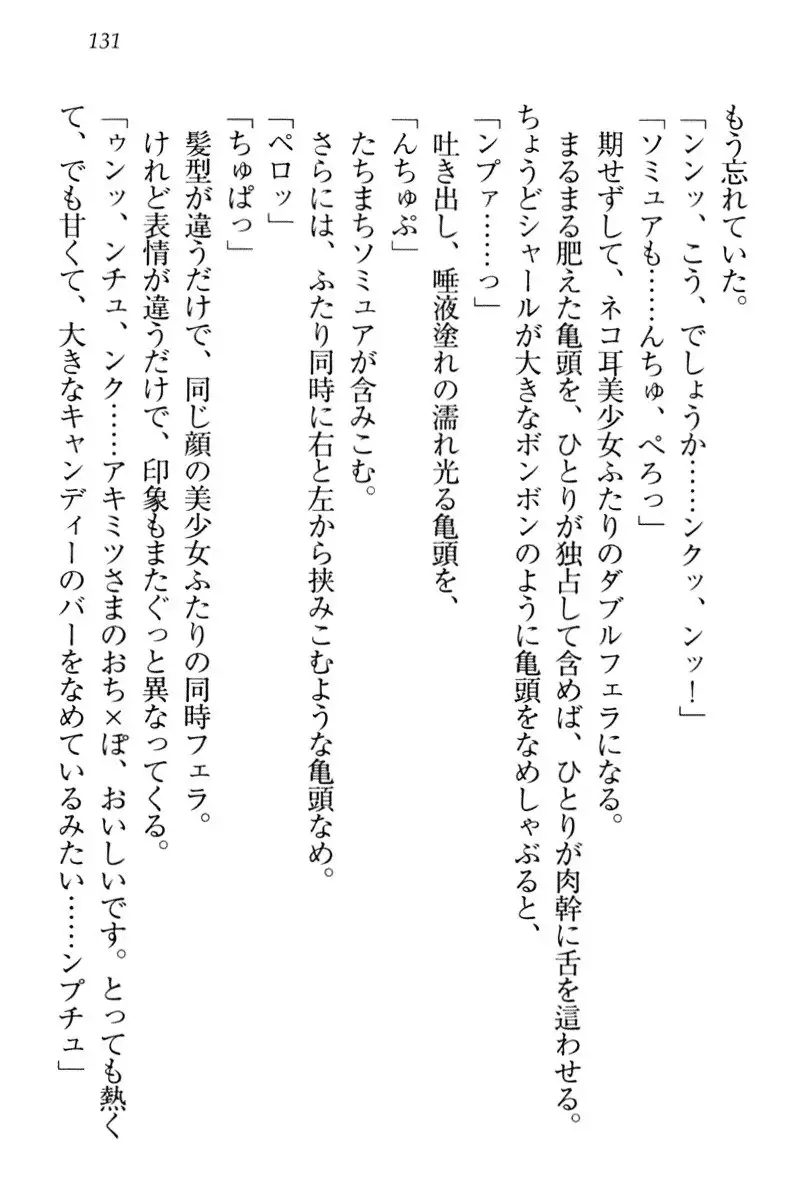 131
もう忘れていた。
「ンンッ、こう、でしょうか……ンクッ、ンッ！」
「ソミュアも……んちゅ、ぺろっ」
期せずして、ネコ耳美少女ふたりのダブルフェラになる。
まるまる肥えた亀頭を、ひとりが独占して含めば、ひとりが肉幹に舌を這わせる。
ちょうどシャールが大きなボンボンのように亀頭をなめしゃぶると、
「ンプァ……っ」
吐き出し、唾液塗れの濡れ光る亀頭を、
「んちゅぷ」
たちまちソミュアが含みこむ。
さらには、ふたり同時に右と左から挟みこむような亀頭なめ。
「ペロッ」
「ちゅぱっ」
髪型が違うだけで、同じ顔の美少女ふたりの同時フェラ。
けれど表情が違うだけで、印象もまたぐっと異なってくる。
「ゥンッ、ンチュ、ンク……アキミツさまのおち×ぽ、おいしいです。とっても熱く
て、でも甘くて、大きなキャンディーのバーをなめているみたい……ンプチュ」